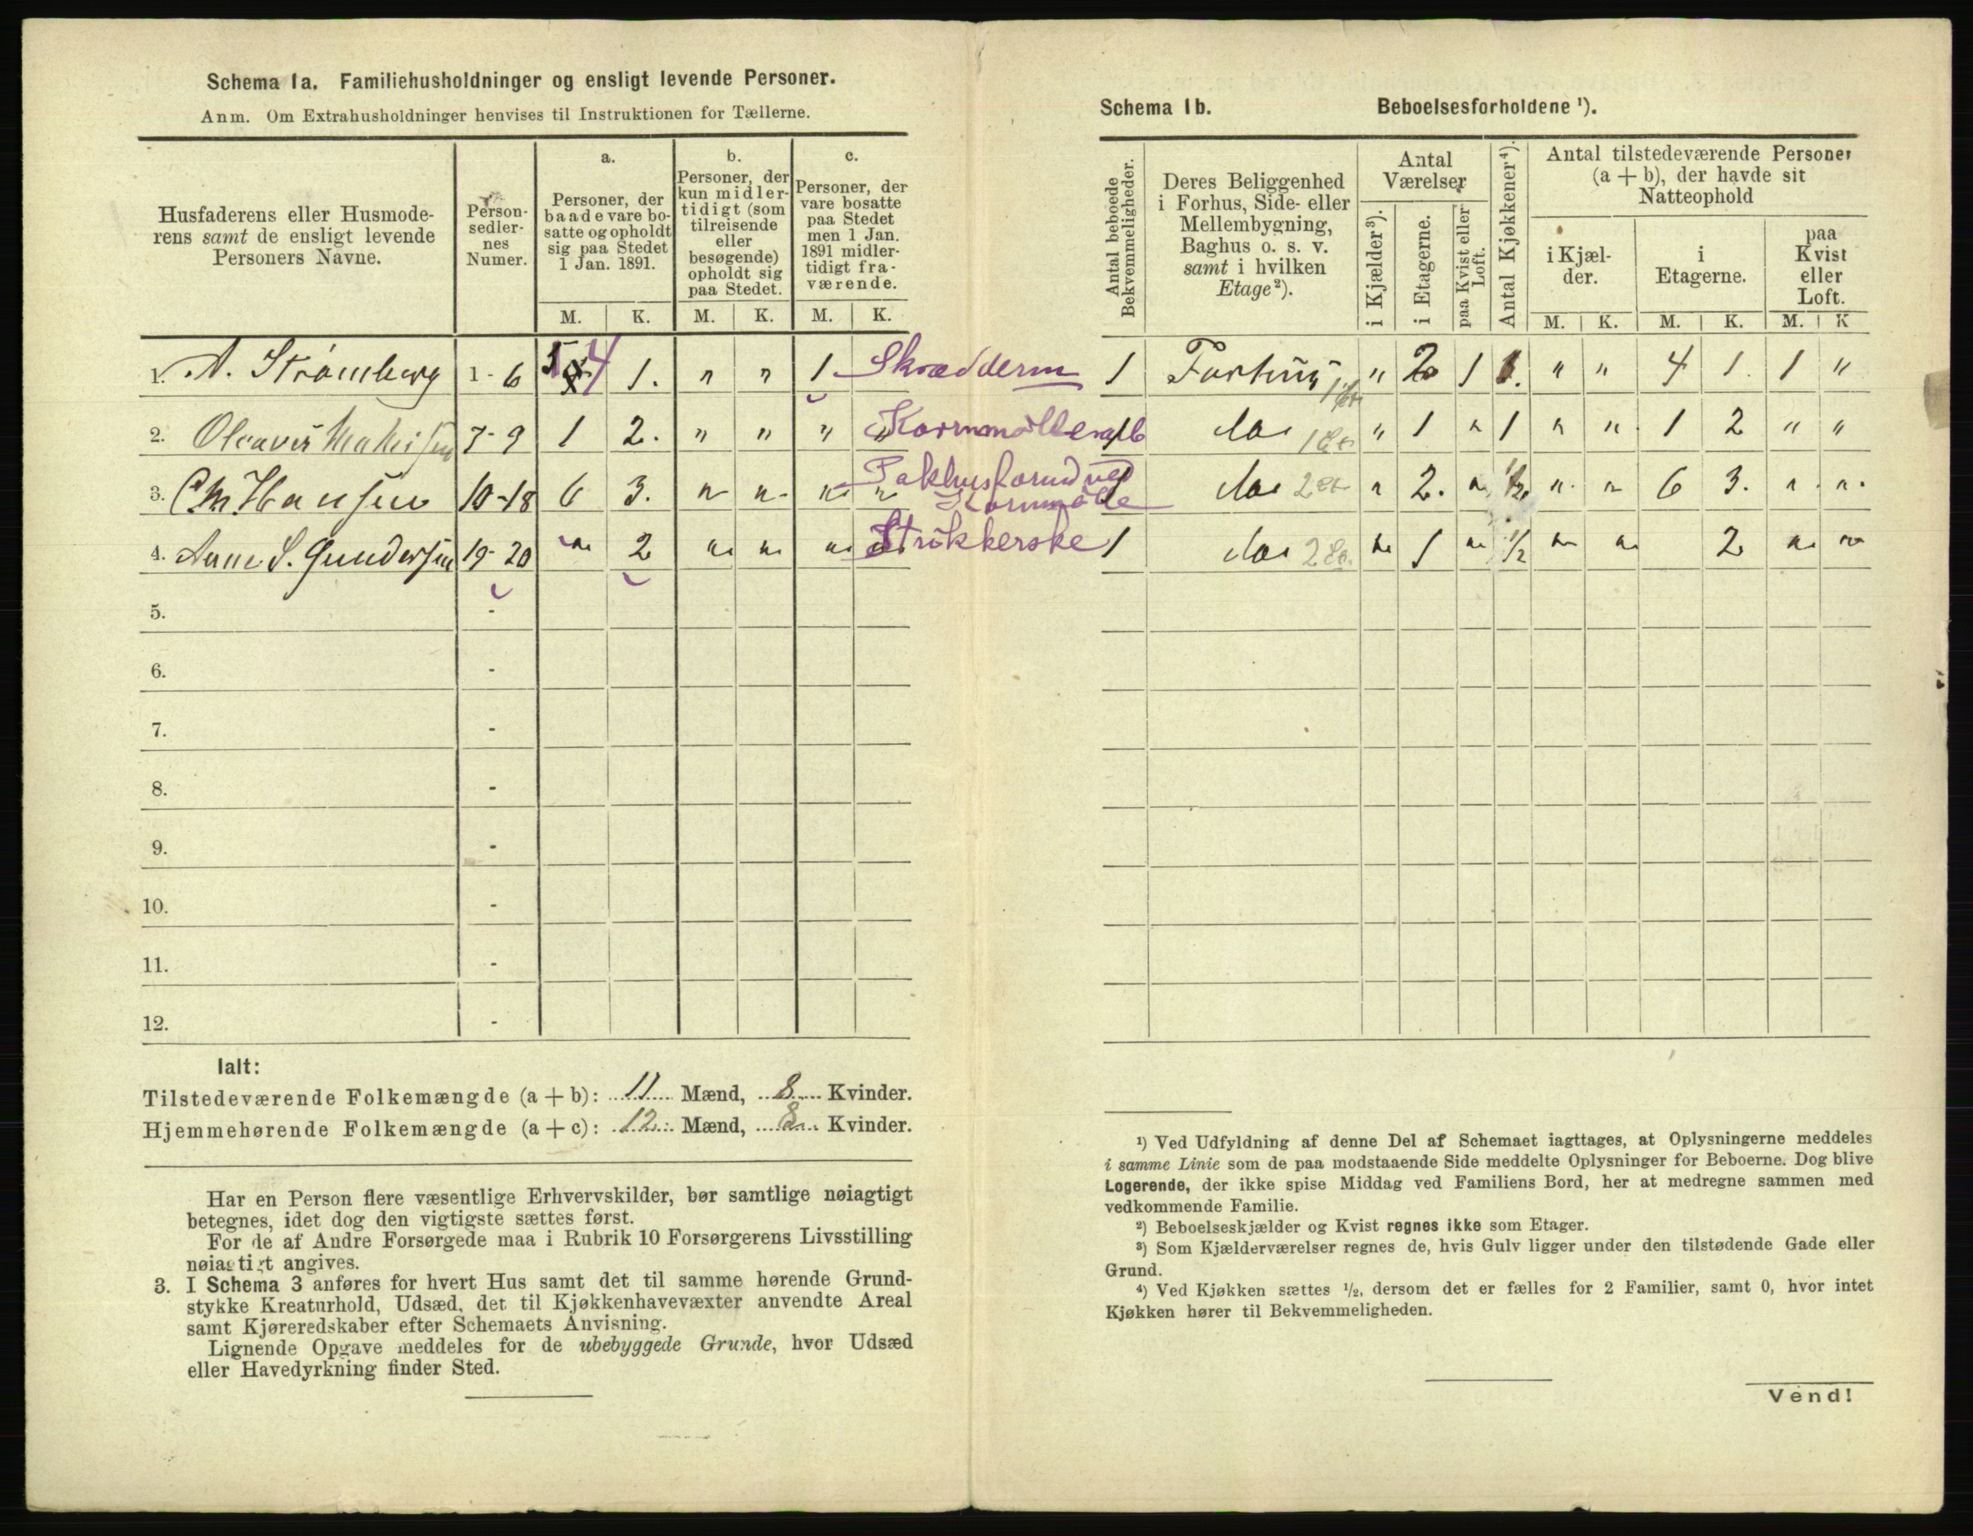 Schema 1a. Familiehusholdninger og ensligt levende Personer.
Anm. Om Extrahusholdninger henvises til Instruktionen for Tællerne.
Husfaderens eller Husmoderens samt de ensligt levende Personers Navne.
Personsedlernes Numer.
a. Personer, der baade vare bosatte og opholdt sig paa Stedet 1 Jan. 1891.
b. Personer, der kun midlertidigt (som tilreisende eller besøgende) opholdt sig paa Stedet.
c. Personer, der vare bosatte paa Stedet men 1 Jan. 1891 midlertidigt fraværende.
M. K. M. K. M. K.
1. A. Strømberg 1-6 5 4 1. " " 1 Skrædderm
2. Olavus 7-9 1 2. " " " " Kornmølle
3. C M Hansen 10-18 6 3. " " " " Pakhusformd ved Kornmølle
4. Anne S. Gundersen 19-20 " 2 " " " " Strykkerske
5. -
6. -
7. -
8. -
9. -
10. -
11. -
12. -
Ialt:
Tilstedeværende Folkemængde (a + b): 11 Mænd, 8 Kvinder.
Hjemmehørende Folkemængde (a + c): 12 Mænd, 8 Kvinder.
Har en Person flere væsentlige Erhvervskilder, bør samtlige nøiagtigt
betegnes, idet dog den vigtigste sættes først.
For de af Andre Forsørgede maa i Rubrik 10 Forsørgerens Livsstilling
nøiagtigt angives.
3. I Schema 3 anføres for hvert Hus samt det til samme hørende Grund-
stykke Kreaturhold, Udsæd, det til Kjøkkenhavevæxter anvendte Areal
samt Kjøreredskaber efter Schemaets Anvisning.
Lignende Opgave meddeles for de ubebyggede Grunde, hvor Udsæd
eller Havedyrkning finder Sted.
Schema 1b. Beboelsesforholdene ¹).
Antal beboede Bekvemmeligheder.
Deres Beliggenhed i Forhus, Side- eller Mellembygning, Baghus o. s. v. samt i hvilken Etage ²).
Antal Værelser
i Kjælder ³).
i Etagerne.
paa Kvist eller Loft.
Antal Kjøkkener ⁴).
Antal tilstedeværende Personer (a + b), der havde sit Natteophold
i Kjælder.
i Etagerne.
paa Kvist eller Loft.
M. K. M. K. M. K
1 Forhus 1 Et " 2 1 1. " " 4 1. 1 "
1 do 1 Et " 1 " 1 " " 1 2 " "
1 do 2 Et " 2. " ½ " " 6 3. " "
1 do 2 Et. " 1 " ½ " " 2 " "
¹) Ved Udfyldning af denne Del af Schemaet iagttages, at Oplysningerne meddeles
i samme Linie som de paa modstaaende Side meddelte Oplysninger for Beboerne. Dog blive
Logerende, der ikke spise Middag ved Familiens Bord, her at medregne sammen med
vedkommende Familie.
²) Beboelseskjælder og Kvist regnes ikke som Etager.
³) Som Kjælderværelser regnes de, hvis Gulv ligger under den tilstødende Gade eller
Grund.
⁴) Ved Kjøkken sættes ½, dersom det er fælles for 2 Familier, samt 0, hvor intet
Kjøkken hører til Bekvemmeligheden.
Vend!